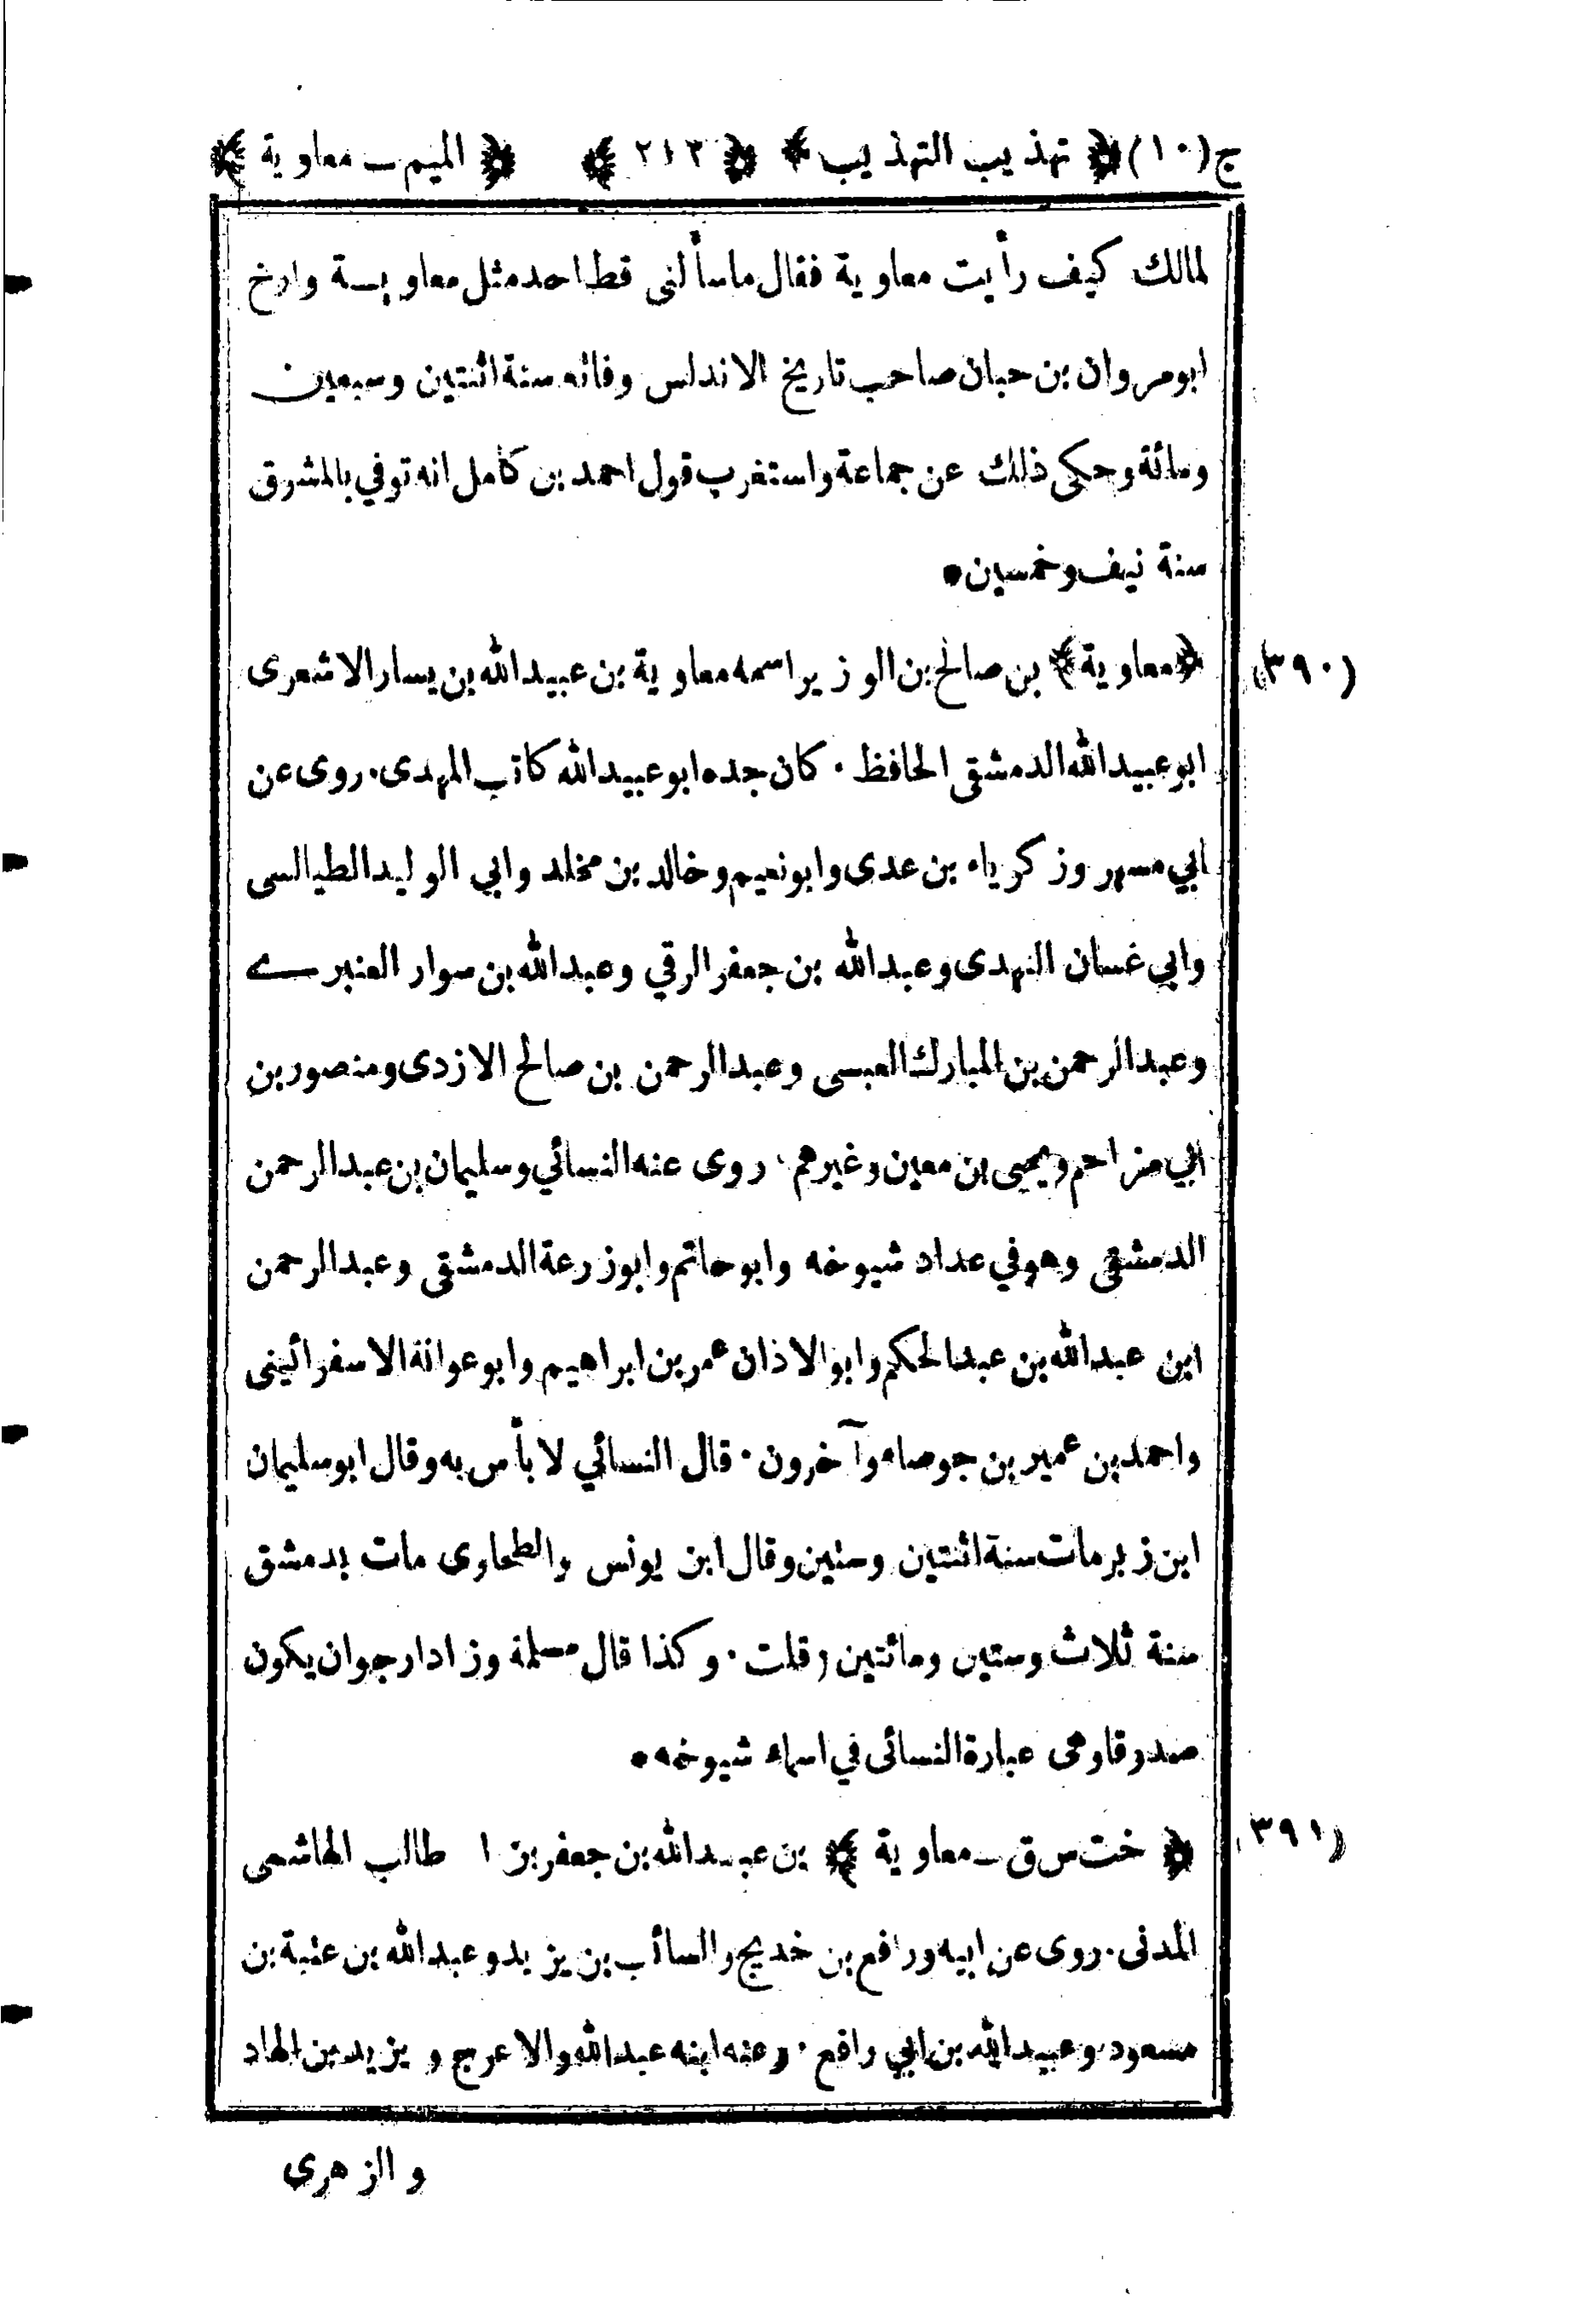 ج(١٠) ﴿ تهذيب التهذيب ﴾ ﴿ ٢١٣ ﴾ ﴿ الميم ـ معاوية ﴾
لمالك كيف رأيت معاوية فقال ماسألنى قط احد مثل معاوية وارخ
ابومروان بن حبان صاحب تاريخ الاندلس وفاته سنة اثنتين وسبعين
ومائة وحكى ذلك عن جماعة واستغرب قول احمد بن كامل انه توفي بالمشرق
سنة نيف وخمسين •
(٣٩٠) ﴿ معاوية ﴾ بن صالح بن الوزير اسمه معاوية بن عبيدالله بن يسار الاشعرى
ابوعبيدالله الدمشقى الحافظ . كان جده ابوعبيدالله كاتب المهدى . روى عن
ابي مسهر وزكرياء بن عدى وابونعيم وخالد بن مخلد وابي الوليد الطيالسى
وابي غسان النهدى وعبدالله بن جعفر الرقي وعبدالله بن سوار العنبرے
وعبدالرحمن بن المبارك العبسى وعبدالرحمن بن صالح الازدى ومنصور بن
ابي مزاحم ويحيى بن معين وغيرهم . روى عنه النسائي وسليمان بن عبدالرحمن
الدمشقى وهوفي عداد شيوخه وابوحاتم وابوزرعة الدمشقى وعبدالرحمن
ابن عبدالله بن عبدالحكم وابوالاذان عمر بن ابراهيم وابوعوانة الاسفرائينى
واحمد بن عمير بن جوصاء وآخرون . قال النسائي لا بأس به وقال ابوسليمان
ابن زبر مات سنة اثنتين وستين وقال ابن يونس والطحاوى مات بدمشق
سنة ثلاث وستين ومائتين ﴿ قلت . وكذا قال مسلمة وزاد ارجوان يكون
صدوقا وهى عبارة النسائى في اسماء شيوخه •
(٣٩١) ﴿ خت س ق ـ معاوية ﴾ بن عبدالله بن جعفر بن ا طالب الهاشمى
المدنى . روى عن ابيه ورافع بن خديج والسائب بن يزيد وعبدالله بن عتبة بن
مسعود وعبيدالله بن ابي رافع . وعنه ابنه عبدالله والاعرج ويزيد بن الهاد
والزهرى